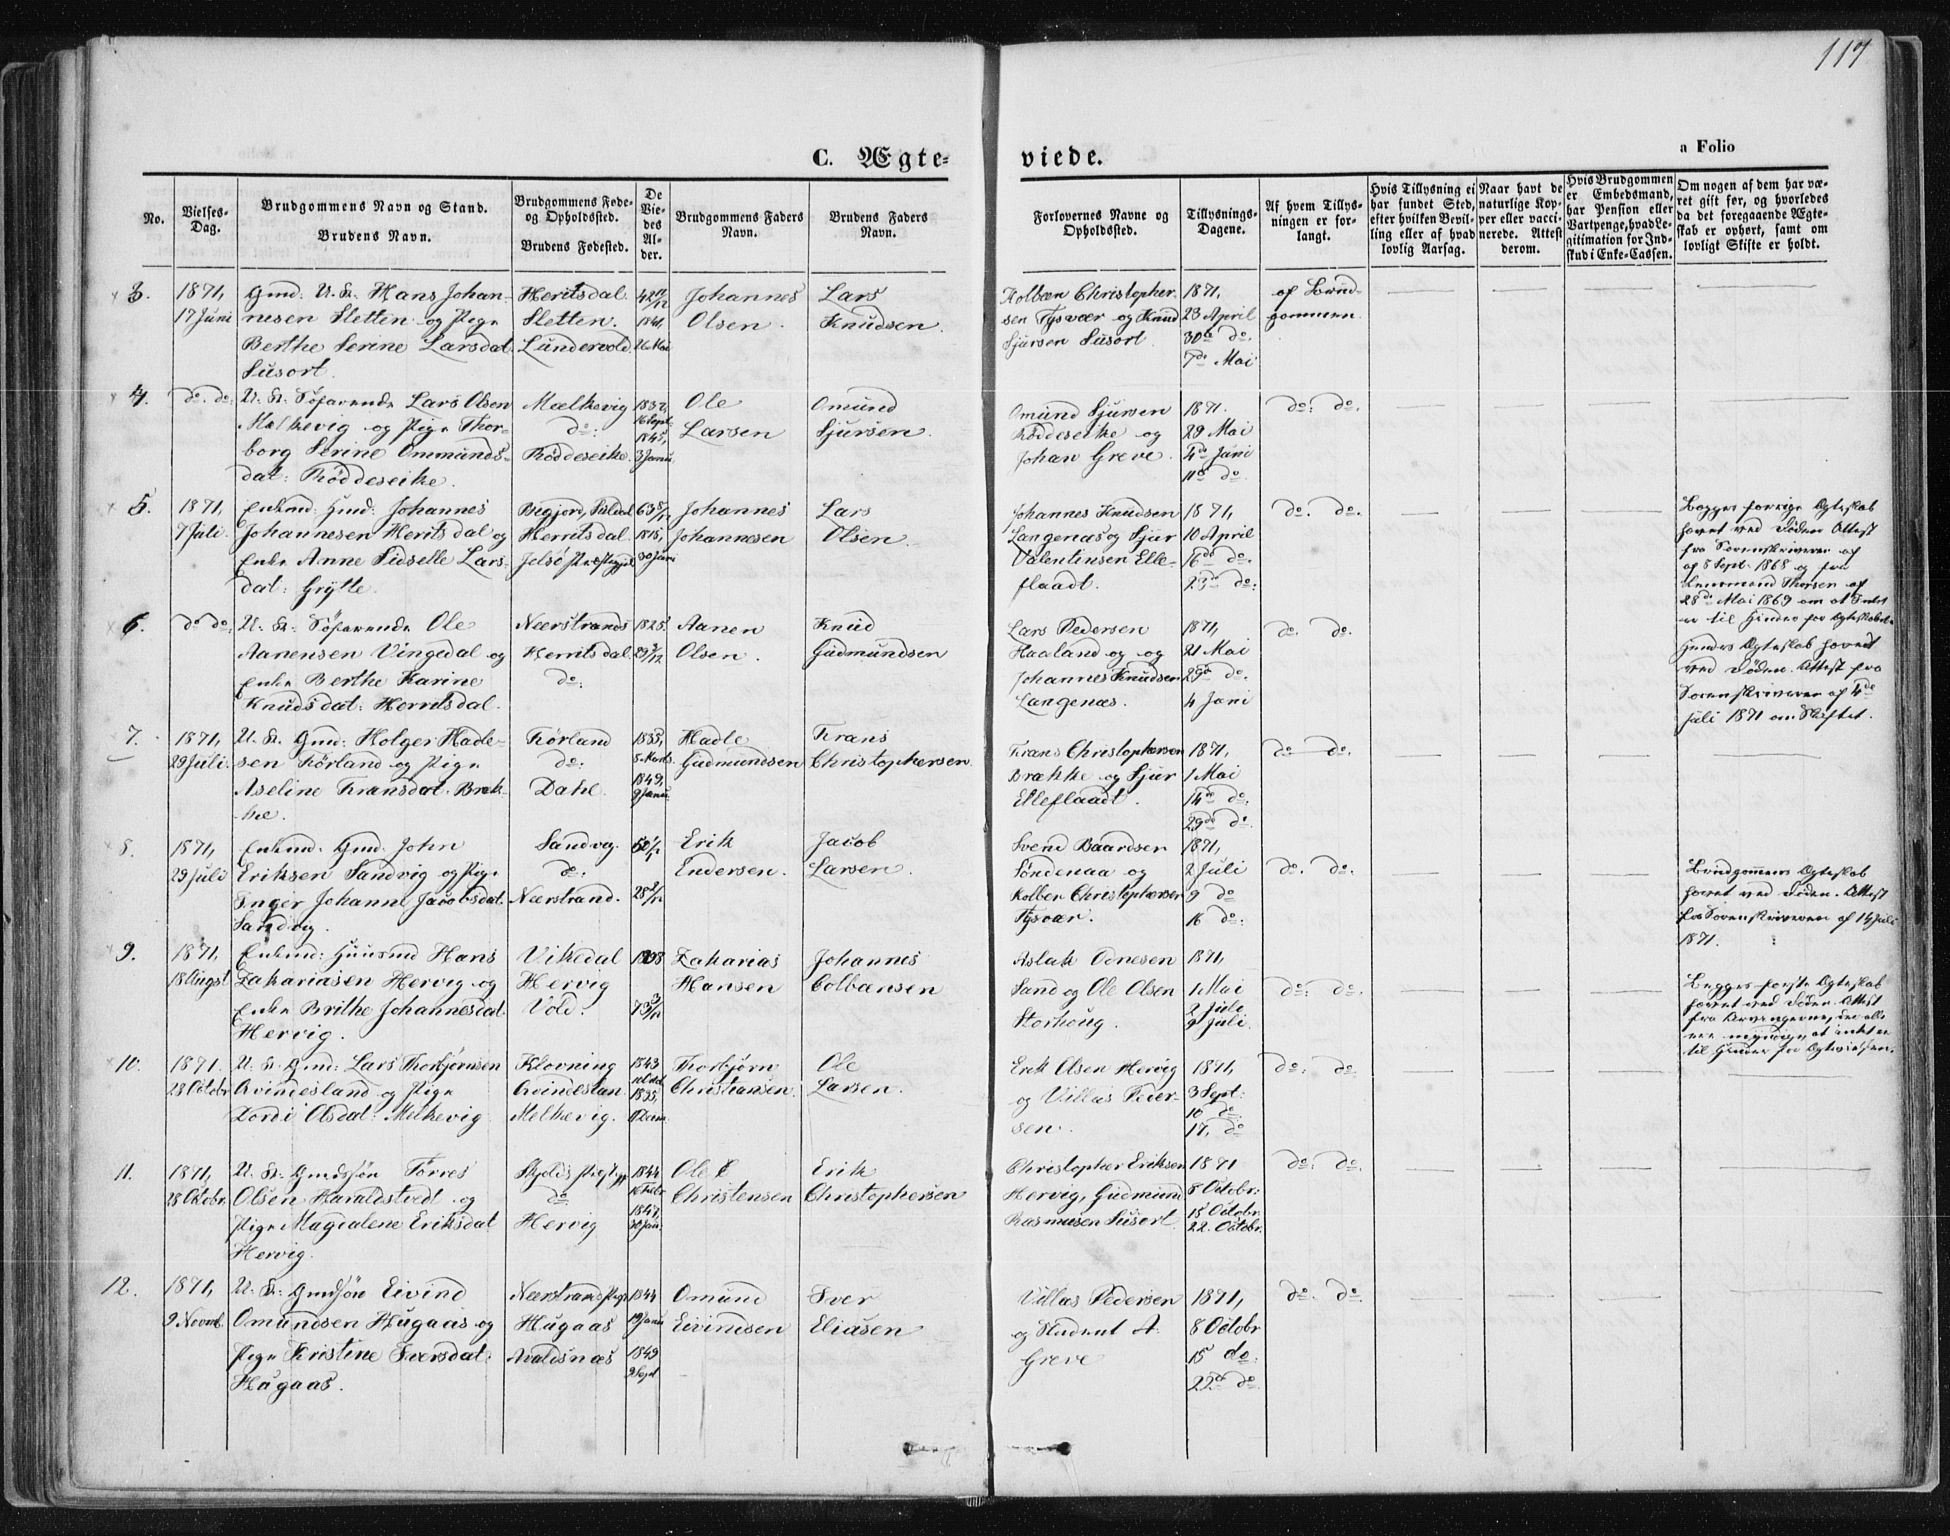 117
C. Ægte-
viede.
a Folio
No.
Vielses-
Dag.
Brudgommens Navn og Stand.
Brudens Navn.
Brudgommens Føde-
og Opholdssted.
Brudens Fødested.
De
Vie-
des
Al-
der.
Brudgommens Faders
Navn.
Brudens Faders
Navn.
Forlovernes Navne og
Opholdssted.
Tillysnings-
Dagene.
Af hvem Tillys-
ningen er for-
langt.
Hvis Tillysning ei
har fundet Sted,
efter hvilken Bevil-
ling eller af hvad
lovlig Aarsag.
Naar havt de
naturlige Kop-
per eller vacci-
nerede. Attest
derom.
Hvis Brudgommen
er Embedsmand,
har Pension eller
Vartpenge, hvad Le-
gitimation for Ind-
skud i Enke-Cassen.
Om nogen af dem har væ-
ret gift før, og hvorledes
da det foregaaende Ægte-
skab er ophørt, samt om
lovligt Skifte er holdt.
3.
1871,
17 Juni
Gmd: U. K. Hans Johan-
nesen Sletten og Pige
Berthe Serine Larsdat
Susort.
Heritsdal
Sletten.
Lundervold
42 11/12
1841,
26 Mai
Johannes
Olsen.
Lars
Knudsen.
Kolben Christopher-
sen Tysvær og Knud
Sjursen Susort.
1871,
23 April
30te do.
7de Mai
af Brud-
gommen.
4.
do. do.
U. K. Søfarende Lars Olsen
Melkevig og Pige Thor-
borg Serine Ommunds-
dat: Røddeseike.
Mælkevig
do:
Røddeseike.
1832,
16 Sept
1845,
3 Janu
Ole
Larsen
Omund
Sjursen.
Omund Sjursen
Røddeseike og
Johan Greve.
1871.
29 Mai
4de Juni
11te do.
do: do.
5.
1871,
7 Juli.
Enkmd: Gmd: Johannes
Johannesen Heritsdal og
Enke Anne Sidselle Lars-
dat: Grytte.
Heritsdal.
Jelsø Præstegjel
63 5/12
1815,
30 Juni
Johannes
Johannesen
Lars
Olsen.
Johannes Knudsen
Langenæs og Sjur
Valentinsen Elle-
flaadt.
1871,
10 April
16de do.
23de do:
do. do.
Begges forrige Ægteskab
hævet ved Døden. Attest
fra Sorenskriveren af
af 5 Sept. 1868 og fra
Lensmand Thorsen af
28de Mai 1869 om at Intet
er til Hinder for Ægteskabet.
6.
do do.
U. K. Søfarende Ole
Aanensen Vingedal og
Enke Berthe Karine
Knudsdat: Herritsdal.
Neerstrands
Herritsdal.
do:
1825.
29 3/12
Aanen
Olsen.
Knud
Gudmundsen
Lars Pedersen
Haaland og og
Johannes Knudsen
Langenæs.
1871,
21 Mai
29de do.
4 Juni
do. do.
Hendes Ægteskab hævet
ved Døden. Attest fra
Sorenskriveren af 4de
Juli 1871 om Skiftet.
7.
1871,
29 Juli.
U. K. Gmd: Holger Hadle-
sen Førland og Pige
Aseline Fransdat. Bræk-
ke.
Førland
do:
Dahl.
1835,
5 Marts
1849,
9 Janu
Hadle
Gudmundsen
Frans
Christophersen
Frans Christophersen
Brække og Sjur
Elleflaadt.
1871,
1 Mai
14de do.
29de do.
do do.
8.
1871,
29 Juli
Enkmd. Gmd. John
Eriksen Sandvig og Pige
Inger Johanne Jacobsdat.
Sandvig.
Sandvig.
do:
Neerstrand.
50 1/2
28 3/12
Erik
Endersen.
Jacob
Larsen.
Svend Baardsen
Søndenaa og
Kolben Christophersen
Tysvær.
1871,
2 Juli
9 do
16 do:
do. do.
Brudgommens Ægteskab
hævet ved Døden. Attest
fra Sorenskriveren af 14 Juli
1871.
9.
1871,
18 Augst
Enkmd: Huusmd Hans
Zakariasen Hervig og
Enke Brithe Johannesdat.
Hervig.
Vikedal
Hervig
Vold.
1808
73 3/12
Zakarias
Hansen
Johannes
Colbensen
Aslak Odnesen
Sand og Ole Olsen
Storhoug.
1871,
1 Mai
2 Juli
9 Juli.
do: do.
Begges første Ægteskab
hævet ved Døden. Attest
fra Arvingerne, der alle
ere myndige, at intet er
til Hinder for Ægtevielsen.
10.
1871.
28 Octobr
U. K. Gmd: Lars Thorbjørnsen
Qvindesland og Pige
Zordi Olsdat: Melkevig
Klovning
Qvindeslan
Melkevig.
1843
1835,
Thorbjørn
Christiansen
Ole
Larsen.
Erik Olsen Hervig
og Villas Peder-
sen.
1871,
3 Sept:
10 do
17, do
do. do.
11.
1871,
28 Oktobr.
U. K. Gmdssøn Tørres
Olsen Haraldstvedt og
Pige Magdalene Eriksdat
Hervig.
Skjolds Præstegj
do
Hervig
1844
16 Febr
1847,
30 Jan.
Ole C
Christensen
Erik
Christophersen
Christopher Eriksen
Hervig, Gudmund
Rasmusen Susort.
1871
8 Octobr:
15 Octobr
22. Octobr.
do. do.
12.
1871,
9 Novmb.
U. K. Gmdssøn Eivind
Omundsen Hugaas og
Pige Kristine Iversdat:
Hugaas.
Neerstrand Præg
Hugaas
Avaldsnæs
1844
19 Janu
1849
9 Sept
Omund
Eivindsen
Iver
Eliasen
Villas Pedersen
og Student A.
Greve
1871,
8 Octobr
15 do:
22de do
do. do.